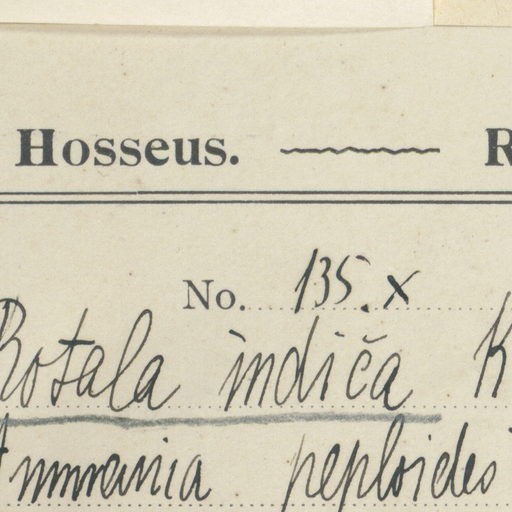 Hosseus. R
No. 135. x
Rotala indica K
Ammania peploides